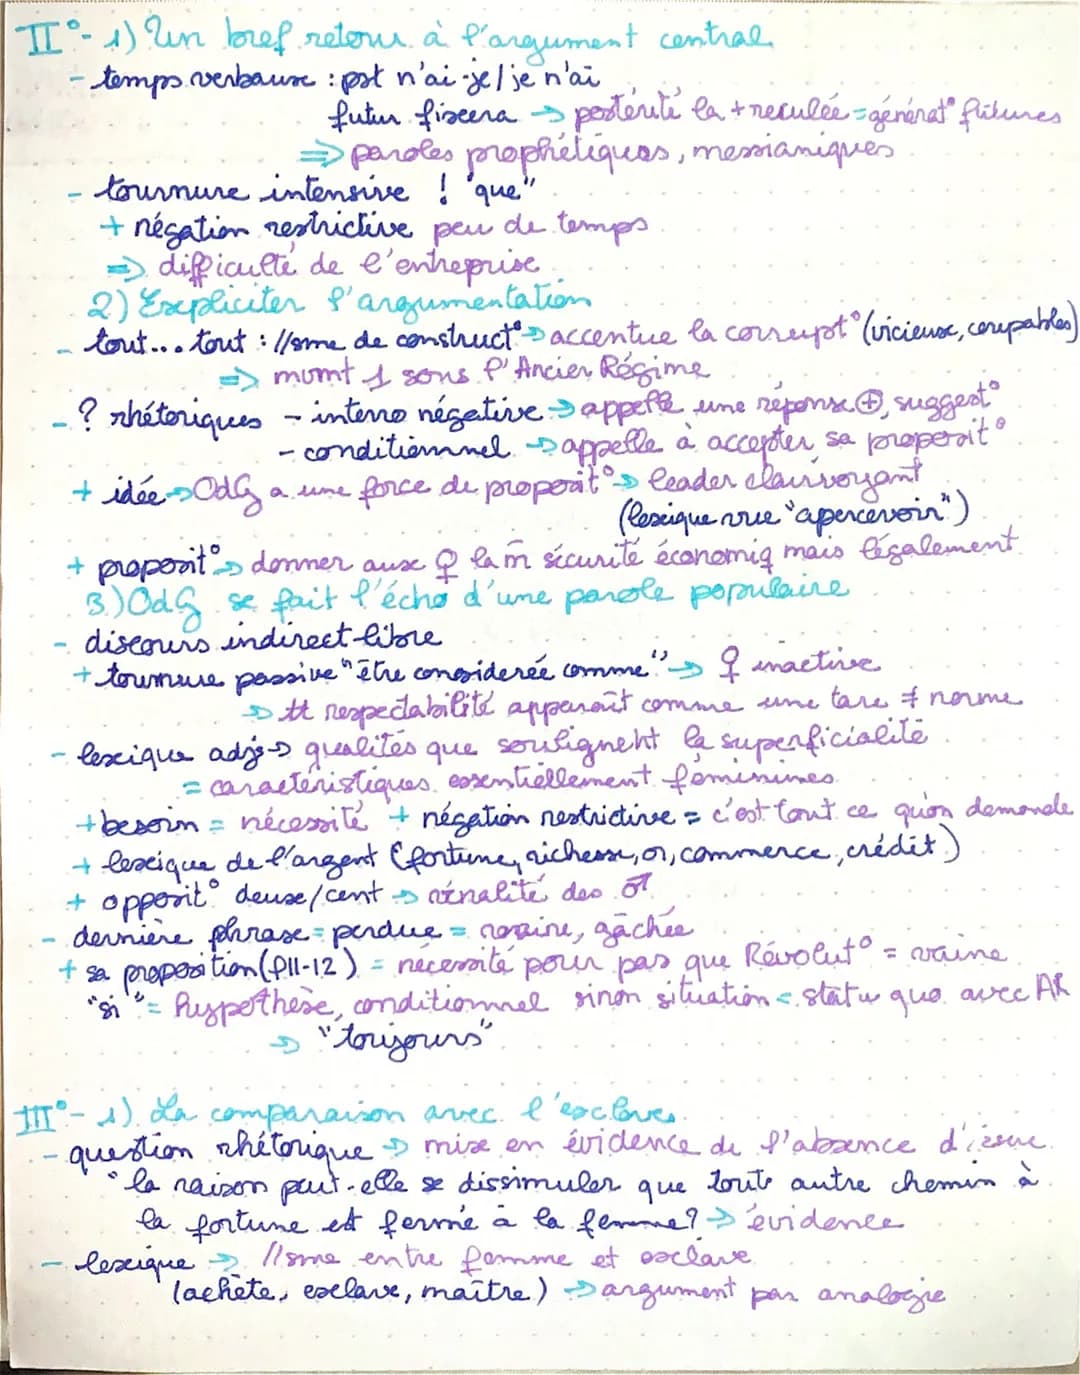 II°- 1) Un bref retour à l'argument central
- temps verbaux : pst n'ai-je / je n'ai
futur fixera → postérité la + reculée = générat° futures
⇒ paroles prophétiques, messianiques
- tournure intensive ! "que"
+ négation restrictive peu de temps
⇒ difficulté de l'entreprise
2) Expliciter l'argumentation
- tout... tout : //sme de construct° → accentue la corrupt° (vicieux, coupables)
⇒ mvmt 1 sous l'Ancien Régime
- ? rhétoriques - interro négative → appelle une réponse ⊕, suggest°
- conditionnel → appelle à accepter sa proposit°
+ idée → OdG a une force de proposit° → leader clairvoyant
(lexique vue "apercevoir")
+ proposit° → donner aux ♀ la m̄ sécurité économiq mais légalement
3.) OdG se fait l'écho d'une parole populaire
- discours indirect libre
+ tournure passive "être considérée comme" → ♀ inactive
→ tt respectabilité apparaît comme une tare ≠ norme
- lexique adjs → qualités que soulignent la superficialité
= caractéristiques essentiellement féminines
+ besoin = nécessité + négation restrictive = c'est tout ce qu'on demande
+ lexique de l'argent (fortune, richesse, or, commerce, crédit)
+ opposit° deux/cent → vénalité des ♂
- dernière phrase = perdue = vaine, gâchée
+ sa proposition (pll-12) = nécessité pour pas que Révolut° = vaine
"si" = hypothèse, conditionnel sinon situation = statu quo avec AR
→ "toujours"
III°- 1) La comparaison avec l'esclave
- question rhétorique → mise en évidence de l'absence d'issue
"la raison peut-elle se dissimuler que tout autre chemin à
la fortune est fermé à la femme? → évidence
- lexique → //sme entre femme et esclave
(achète, esclave, maître) → argument par analogie